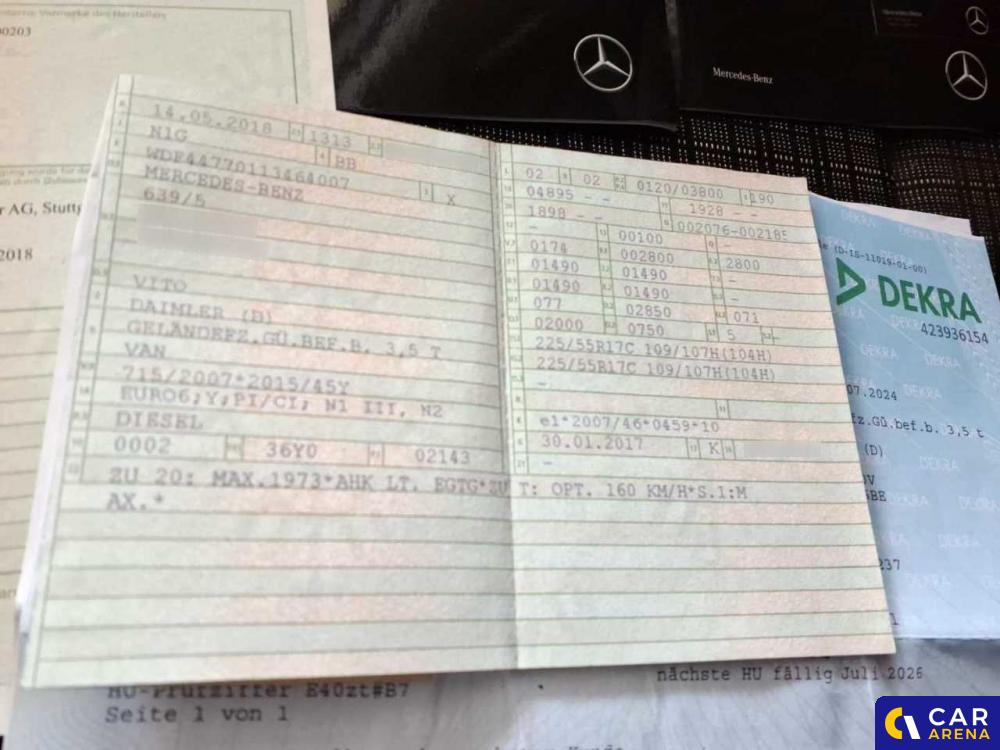 00203
r AG, Stuttg
2018
Mercedes-Benz
14.05.2018 1313
N1G BB
WDF44770113464007
MERCEDES-BENZ X
639/5
VITO
DAIMLER (D)
GELÄNDEFZ.GÜ.BEF.B. 3,5 T
VAN
715/2007*2015/45Y
EURO6;Y;PI/CI; N1 III, N2
DIESEL
0002 36Y0 02143
ZU 20: MAX.1973*AHK LT. EGTG*ZU T: OPT. 160 KM/H*S.I:M
AX.*
02 02 0120/03800 190
04895 - - 1928 - -
1898 - - 002076-002185
- 00100 -
0174 002800 2800
01490 01490 -
01490 01490 -
077 02850 071
02000 0750 5 -
225/55R17C 109/107H(104H)
225/55R17C 109/107H(104H)
-
e1*2007/46*0459*10
30.01.2017 K
-
(D-IS-11019-01-00)
DEKRA
423936154
07.2024
fz.Gü.bef.b. 3,5 t
(D)
237
nächste HU fällig Juli 2026
HU-Prüfziffer E40zt#B7
Seite 1 von 1
CAR
ARENA